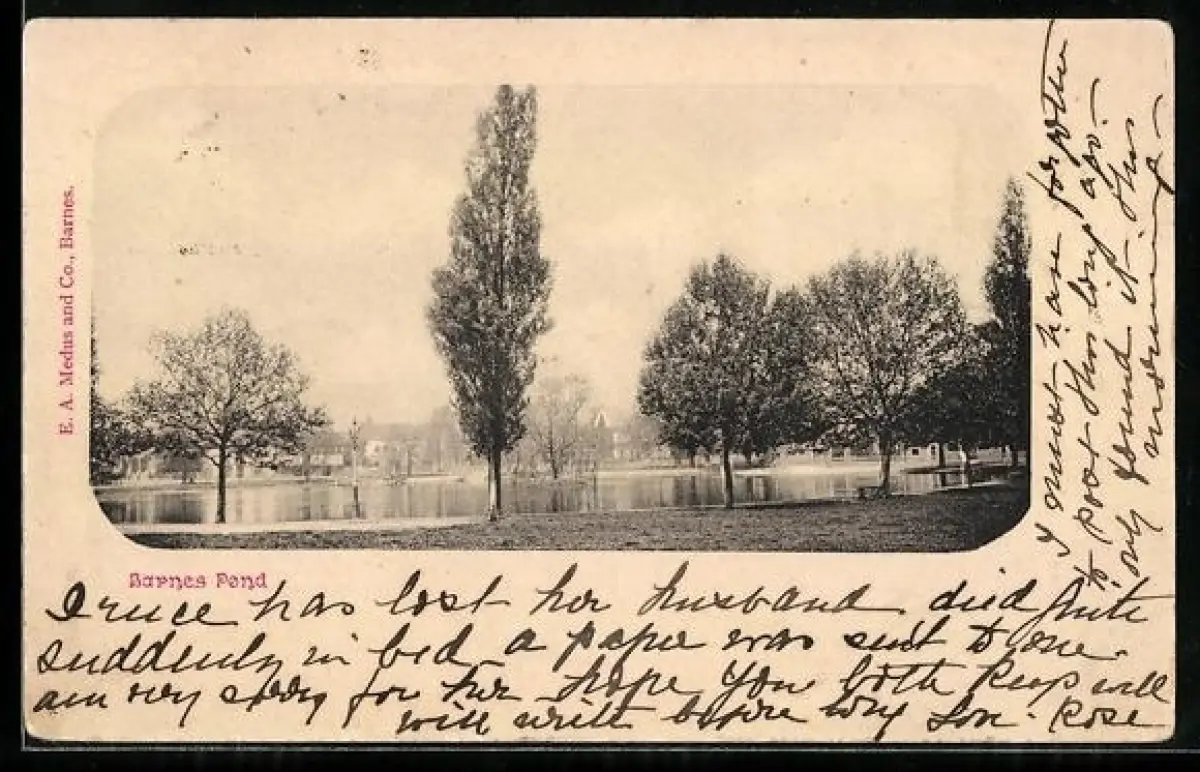 E. A. Medus and Co., Barnes.
Barnes Pond
has lost her husband died quite
suddenly in bed a paper was sent to one.
am very sorry for her hope you both keep well
will write before long Love. Rose
I must have forgotten
to post this long ago.
only found it this
morning